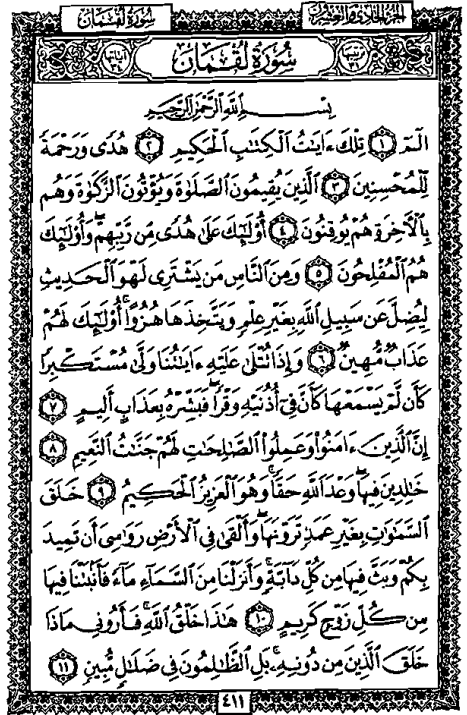 سُورَةُ لُقْمَان الجُزْءُ الحَادِي وَالعِشْرُونَ
آيَاتُهَا ٣٤ سُورَةُ لُقْمَانَ تَرْتِيبُهَا ٣١
بِسْمِ ٱللَّهِ ٱلرَّحْمَٰنِ ٱلرَّحِيمِ
الٓمٓ ۝١ تِلْكَ ءَايَٰتُ ٱلْكِتَٰبِ ٱلْحَكِيمِ ۝٢ هُدًى وَرَحْمَةً
لِّلْمُحْسِنِينَ ۝٣ ٱلَّذِينَ يُقِيمُونَ ٱلصَّلَوٰةَ وَيُؤْتُونَ ٱلزَّكَوٰةَ وَهُم
بِٱلْأَخِرَةِ هُمْ يُوقِنُونَ ۝٤ أُوْلَٰٓئِكَ عَلَىٰ هُدًى مِّن رَّبِّهِمْ ۖ وَأُوْلَٰٓئِكَ
هُمُ ٱلْمُفْلِحُونَ ۝٥ وَمِنَ ٱلنَّاسِ مَن يَشْتَرِى لَهْوَ ٱلْحَدِيثِ
لِيُضِلَّ عَن سَبِيلِ ٱللَّهِ بِغَيْرِ عِلْمٍ وَيَتَّخِذَهَا هُزُوًا ۚ أُوْلَٰٓئِكَ لَهُمْ
عَذَابٌ مُّهِينٌ ۝٦ وَإِذَا تُتْلَىٰ عَلَيْهِ ءَايَٰتُنَا وَلَّىٰ مُسْتَكْبِرًا
كَأَن لَّمْ يَسْمَعْهَا كَأَنَّ فِىٓ أُذُنَيْهِ وَقْرًا ۖ فَبَشِّرْهُ بِعَذَابٍ أَلِيمٍ ۝٧
إِنَّ ٱلَّذِينَ ءَامَنُوا۟ وَعَمِلُوا۟ ٱلصَّٰلِحَٰتِ لَهُمْ جَنَّٰتُ ٱلنَّعِيمِ ۝٨
خَٰلِدِينَ فِيهَا ۖ وَعْدَ ٱللَّهِ حَقًّا ۚ وَهُوَ ٱلْعَزِيزُ ٱلْحَكِيمُ ۝٩ خَلَقَ
ٱلسَّمَٰوَٰتِ بِغَيْرِ عَمَدٍ تَرَوْنَهَا ۖ وَأَلْقَىٰ فِى ٱلْأَرْضِ رَوَٰسِىَ أَن تَمِيدَ
بِكُمْ وَبَثَّ فِيهَا مِن كُلِّ دَآبَّةٍ ۚ وَأَنزَلْنَا مِنَ ٱلسَّمَآءِ مَآءً فَأَنۢبَتْنَا فِيهَا
مِن كُلِّ زَوْجٍ كَرِيمٍ ۝١٠ هَٰذَا خَلْقُ ٱللَّهِ فَأَرُونِى مَاذَا
خَلَقَ ٱلَّذِينَ مِن دُونِهِۦ ۚ بَلِ ٱلظَّٰلِمُونَ فِى ضَلَٰلٍ مُّبِينٍ ۝١١
٤١١